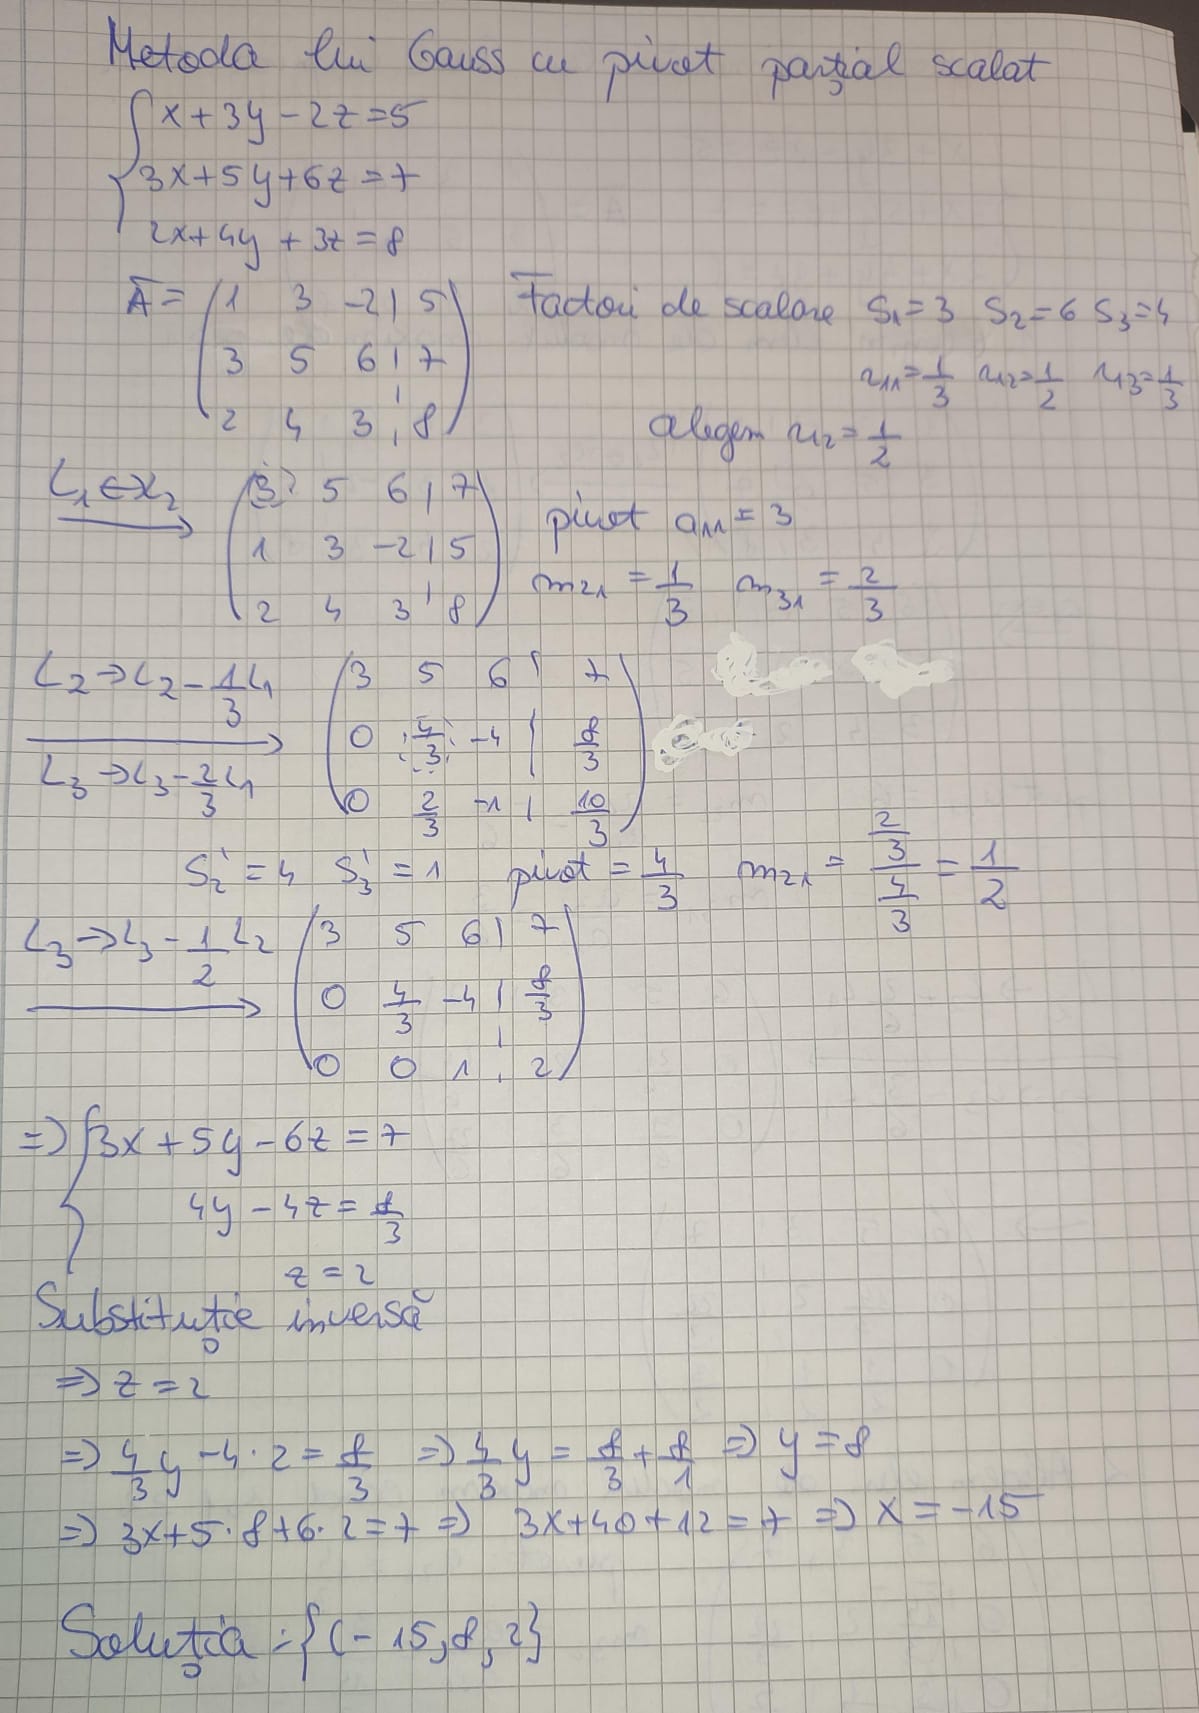 Metoda lui Gauss cu pivot parțial scalat
x + 3y - 2z = 5
3x + 5y + 6z = 7
2x + 4y + 3z = 8
Ā = (1 3 -2 | 5) Factori de scalare S₁ = 3 S₂ = 6 S₃ = 4
(3 5 6 | 7) r₁₁ = 1/3 r₁₂ = 1/2 r₁₃ = 1/3
(2 4 3 | 8) alegem r₁₂ = 1/2
L₁ ↔ L₂ (3 5 6 | 7) pivot a₁₁ = 3
(1 3 -2 | 5)
(2 4 3 | 8) m₂₁ = 1/3 m₃₁ = 2/3
L₂ → L₂ - 1/3 L₁ (3 5 6 | 7)
(0 4/3 -4 | 8/3)
L₃ → L₃ - 2/3 L₁ (0 2/3 -1 | 10/3)
S₂' = 4 S₃' = 1 pivot = 4/3 m₂₁ = (2/3)/(4/3) = 1/2
L₃ → L₃ - 1/2 L₂ (3 5 6 | 7)
(0 4/3 -4 | 8/3)
(0 0 1 | 2)
=> { 3x + 5y - 6z = 7
4y - 4z = 8/3
z = 2
Substituție inversă
=> z = 2
=> 4/3 y - 4 · 2 = 8/3 => 4/3 y = 8/3 + 8/1 => y = 8
=> 3x + 5 · 8 + 6 · 2 = 7 => 3x + 40 + 12 = 7 => x = -15
Soluția = {(-15, 8, 2}